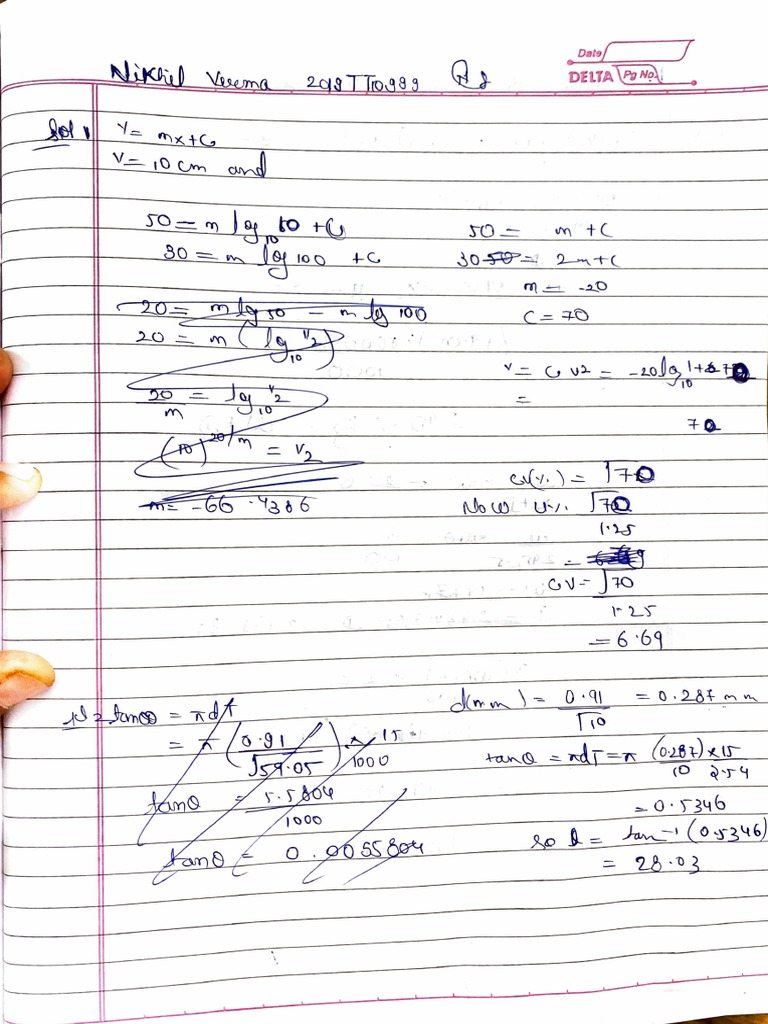 Date
DELTA Pg No.
Nikhil Verma 2019TT10999
Sol 1 Y = mx+C
V = 10 cm and
50 = m log10 10 + C
30 = m log 100 + C
20 = m lg 50 - m lg 100
20 = m (log10 1/2)
20/m = log10 1/2
(10)^20/m = 1/2
m = -66.4386
50 = m + C
30 50 = 2m + C
m = -20
C = 70
V = CV2 = -20 log10 1 + 70
=
70
CV(%) = √70
Now U% √70
1.25
=
CV = √70
1.25
= 6.69
tanθ = πdT
= π (0.91/√59.05) × 15/1000
tanθ = 5.5804/1000
tanθ = 0.0055804
d(mm) = 0.91/√10 = 0.287 mm
tanθ = πdT = π (0.287)/10 × 15/2.54
= 0.5346
so θ = tan⁻¹ (0.5346)
= 28.03